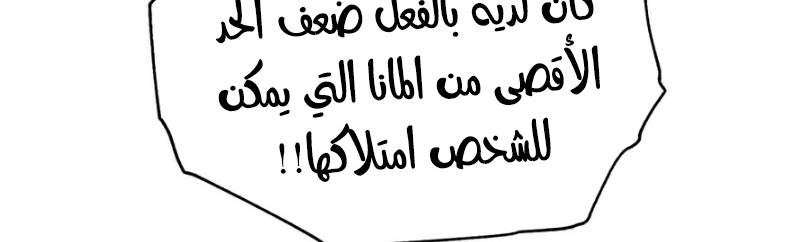 كان لديه بالفعل ضعف الحد
الأقصى من المانا التي يمكن
للشخص امتلاكها!!